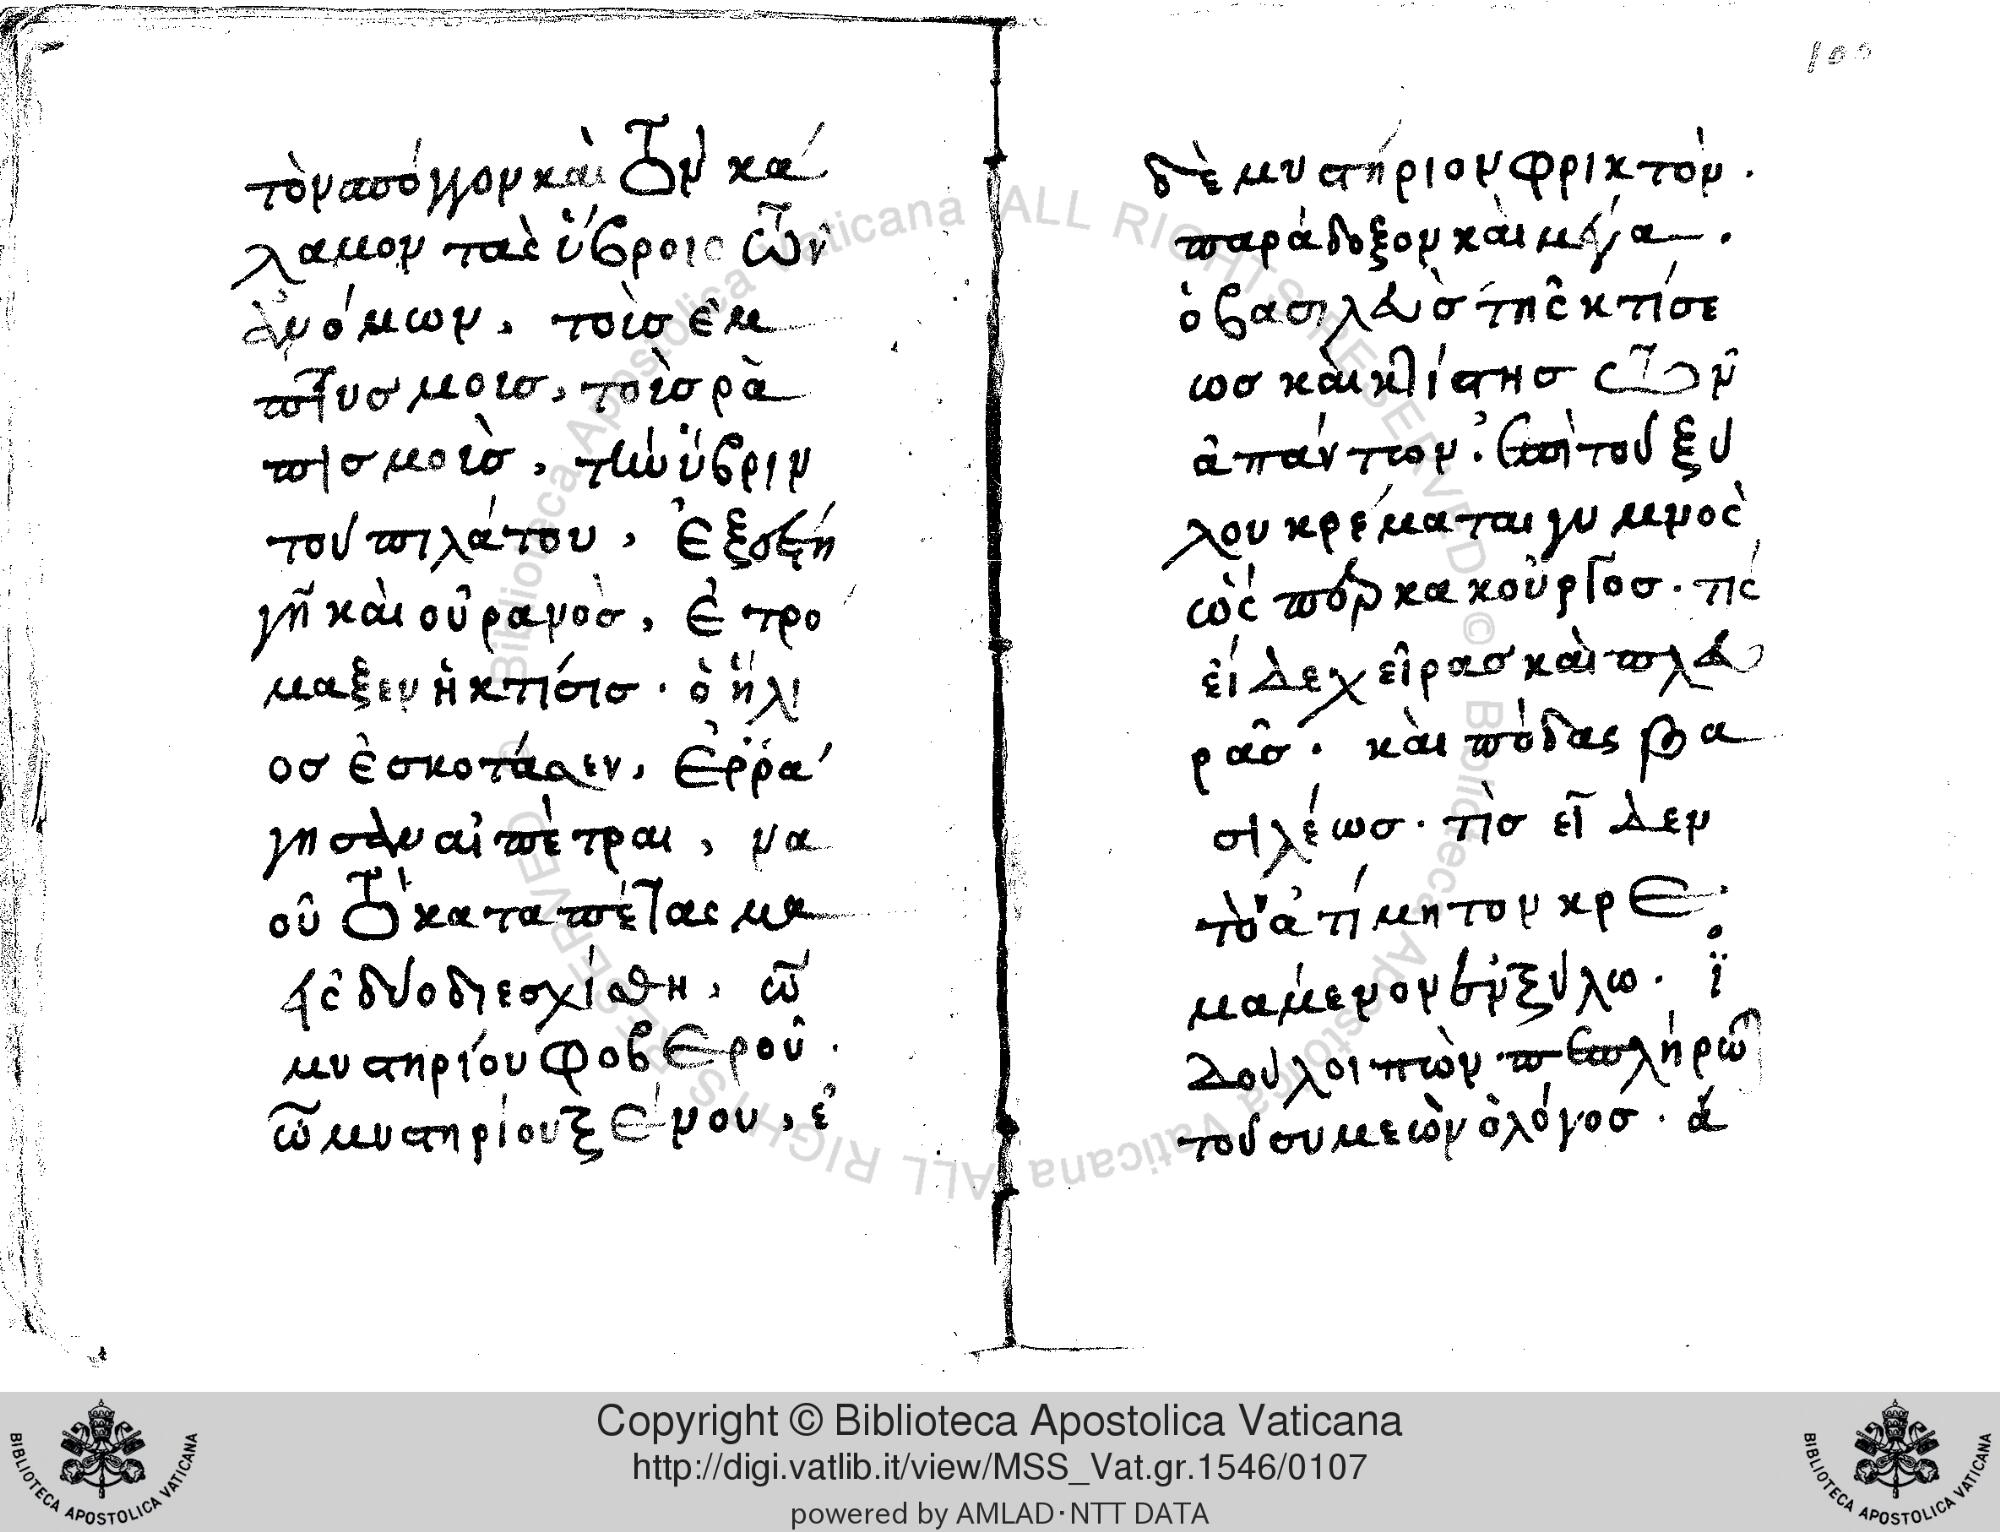 τὸν σπόγγον καὶ τὸν κά
λαμον τὰς ὑβροις τῶν
ἀνόμων, τοὶς ἐμ
πτυσμοις, τοὶς ρὰ
πισμοὶς, τὴν ὑβριν
τοῦ πιλάτου, ἐξέστη
γῆ καὶ οὐρανὸς, ἐτρό
μαξεν ἡ κτίσις · ὁ ἥλι
ος ἐσκοτάσεν, ἐρρά
γησαν αἱ πὲτραι, να
οῦ τὸ καταπέτασμα
εἰς δύο διεσχίσθη, ὦ
μυστηρίου φοβεροῦ ·
ὦ μυστηρίου ξένου, ἐ
100
δὲ μυστήριον φρικτὸν ·
παράδοξον καὶ μέγα ·
ὁ βασιλεὺς τῆς κτίσε
ως καὶ κτίστης τῶν
ἁπάντων · ἐπὶ τοῦ ξύ
λου κρέμαται γυμνὸς
ὡς περ κακοῦργος · τίς
εἶδε χεῖρας καὶ πλευ
ρὰς · καὶ πόδας βα
σιλέως · τὶς εἶδεν
τὸν ἀτίμητον κρε
μάμενον ἐν ξύλω · ϊ
δοὺ λοιπὸν πεπλήρω
ται τοῦ συμεὼν ὁ λόγος · ἅ
Copyright © Biblioteca Apostolica Vaticana
http://digi.vatlib.it/view/MSS_Vat.gr.1546/0107
powered by AMLAD·NTT DATA
BIBLIOTECA APOSTOLICA VATICANA
BIBLIOTECA APOSTOLICA VATICANA